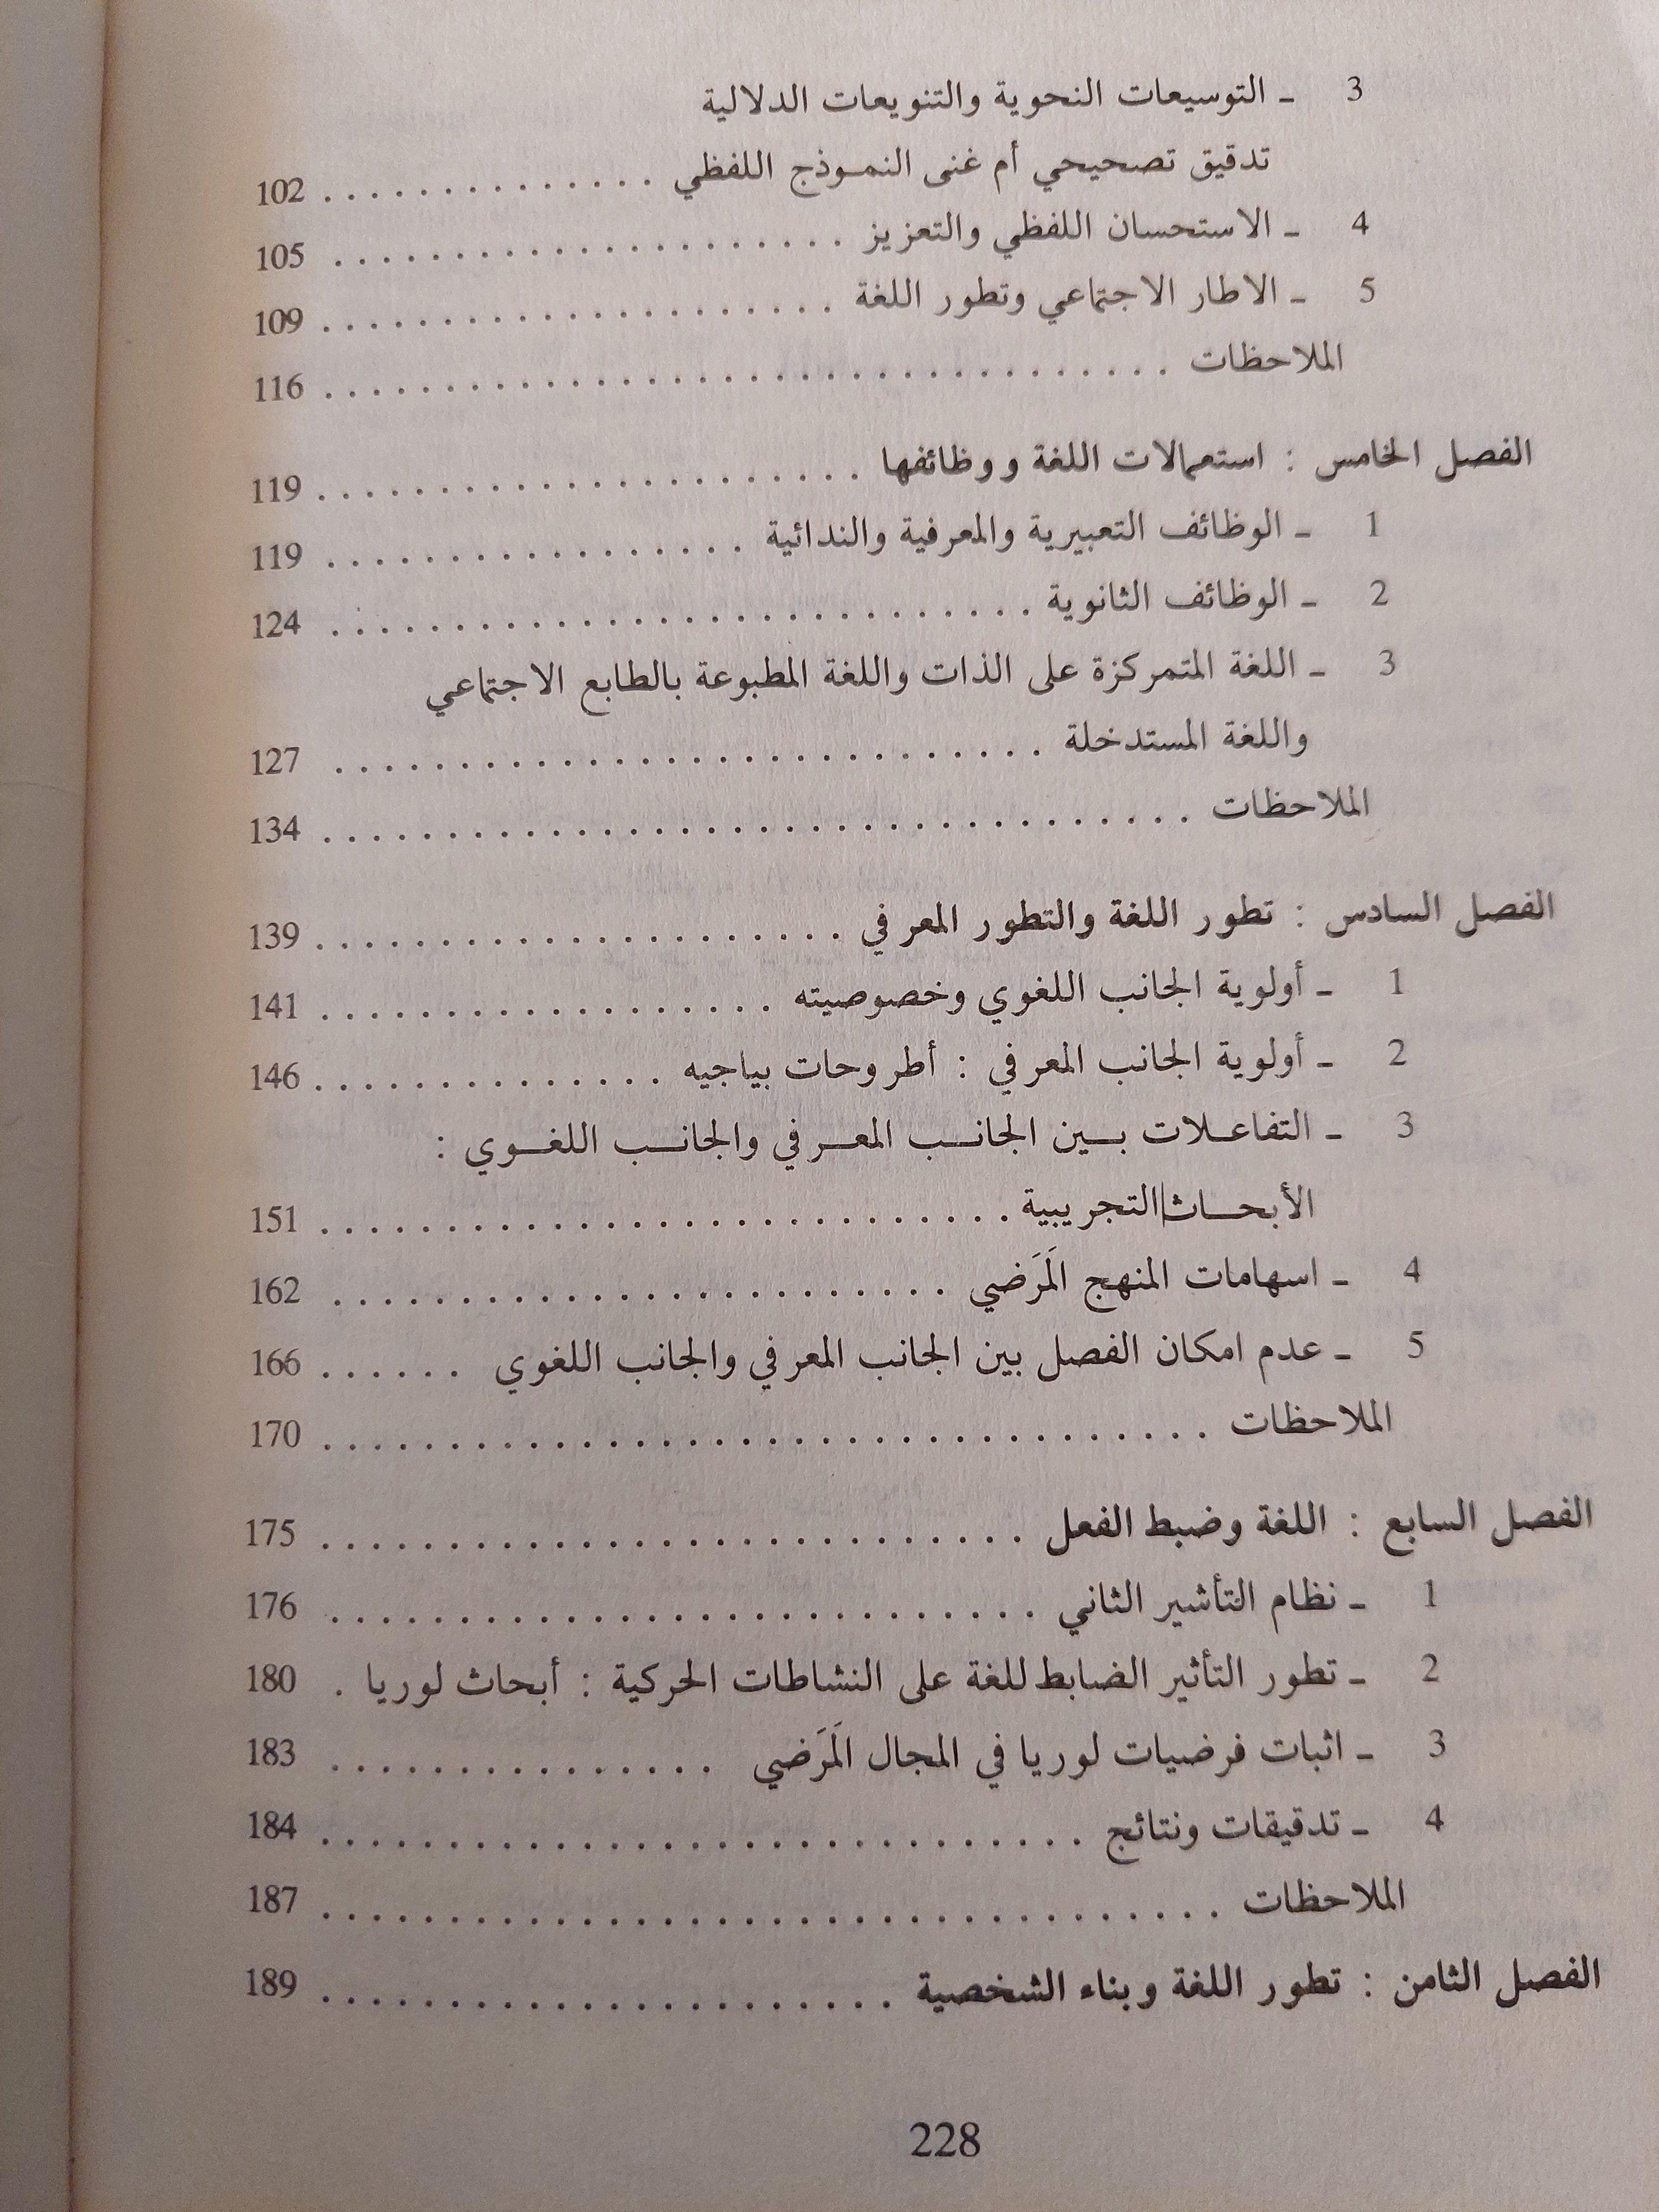 3 ـ التوسيعات النحوية والتنويعات الدلالية
تدقيق تصحيحي أم غنى النموذج اللفظي . . . . . . . . . . . . . . 102
4 ـ الاستحسان اللفظي والتعزيز . . . . . . . . . . . . . . . . . . . . 105
5 ـ الاطار الاجتماعي وتطور اللغة . . . . . . . . . . . . . . . . . . . . . 109
الملاحظات . . . . . . . . . . . . . . . . . . . . . . . . . . . . . . . . . . 116
الفصل الخامس : استعمالات اللغة ووظائفها . . . . . . . . . . . . . . . . . . . . . . 119
1 ـ الوظائف التعبيرية والمعرفية والندائية . . . . . . . . . . . . . . . . . 119
2 ـ الوظائف الثانوية . . . . . . . . . . . . . . . . . . . . . . . . . . . . 124
3 ـ اللغة المتمركزة على الذات واللغة المطبوعة بالطابع الاجتماعي
واللغة المستدخلة . . . . . . . . . . . . . . . . . . . . . . . . . . . . 127
الملاحظات . . . . . . . . . . . . . . . . . . . . . . . . . . . . . . . . . . . 134
الفصل السادس : تطور اللغة والتطور المعرفي . . . . . . . . . . . . . . . . . . . . . 139
1 ـ أولوية الجانب اللغوي وخصوصيته . . . . . . . . . . . . . . . . . . 141
2 ـ أولوية الجانب المعرفي : أطروحات بياجيه . . . . . . . . . . . . . . 146
3 ـ التفاعلات بين الجانب المعرفي والجانب اللغوي :
الأبحاث التجريبية . . . . . . . . . . . . . . . . . . . . . . . . . . . . 151
4 ـ اسهامات المنهج المَرَضي . . . . . . . . . . . . . . . . . . . . . . . . 162
5 ـ عدم امكان الفصل بين الجانب المعرفي والجانب اللغوي . . . . . . 166
الملاحظات . . . . . . . . . . . . . . . . . . . . . . . . . . . . . . . . . . . 170
الفصل السابع : اللغة وضبط الفعل . . . . . . . . . . . . . . . . . . . . . . . . . . . . 175
1 ـ نظام التأشير الثاني . . . . . . . . . . . . . . . . . . . . . . . . . . . . 176
2 ـ تطور التأثير الضابط للغة على النشاطات الحركية : أبحاث لوريا . 180
3 ـ اثبات فرضيات لوريا في المجال المَرَضي . . . . . . . . . . . . . . . . 183
4 ـ تدقيقات ونتائج . . . . . . . . . . . . . . . . . . . . . . . . . . . . . . 184
الملاحظات . . . . . . . . . . . . . . . . . . . . . . . . . . . . . . . . . . . . 187
الفصل الثامن : تطور اللغة وبناء الشخصية . . . . . . . . . . . . . . . . . . . . . . . 189
228